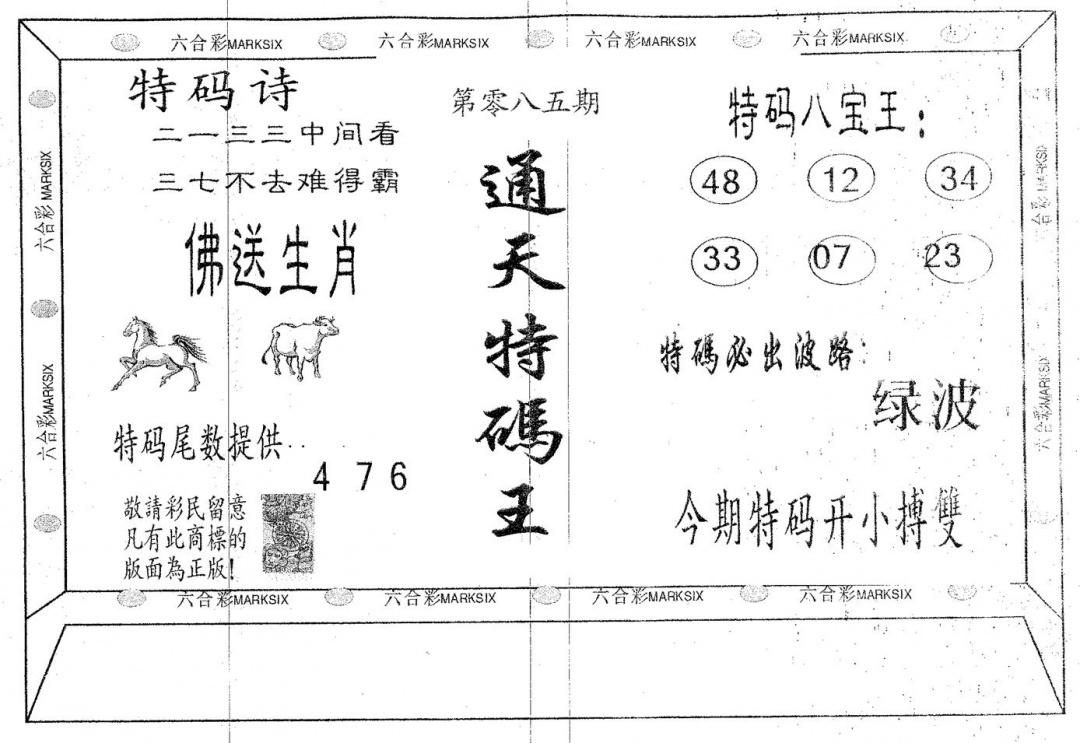 六合彩MARKSIX 六合彩MARKSIX 六合彩MARKSIX 六合彩MARKSIX
特码诗
二一三三中间看
三七不去难得霸
佛送生肖
特码尾数提供..
4 7 6
敬請彩民留意
凡有此商標的
版面為正版!
第零八五期
通天特碼王
特码八宝王:
48 12 34
33 07 23
特碼必出波路:
绿波
今期特码开小搏雙
六合彩MARKSIX
六合彩MARKSIX
六合彩MARKSIX
六合彩MARKSIX
六合彩MARKSIX 六合彩MARKSIX 六合彩MARKSIX 六合彩MARKSIX